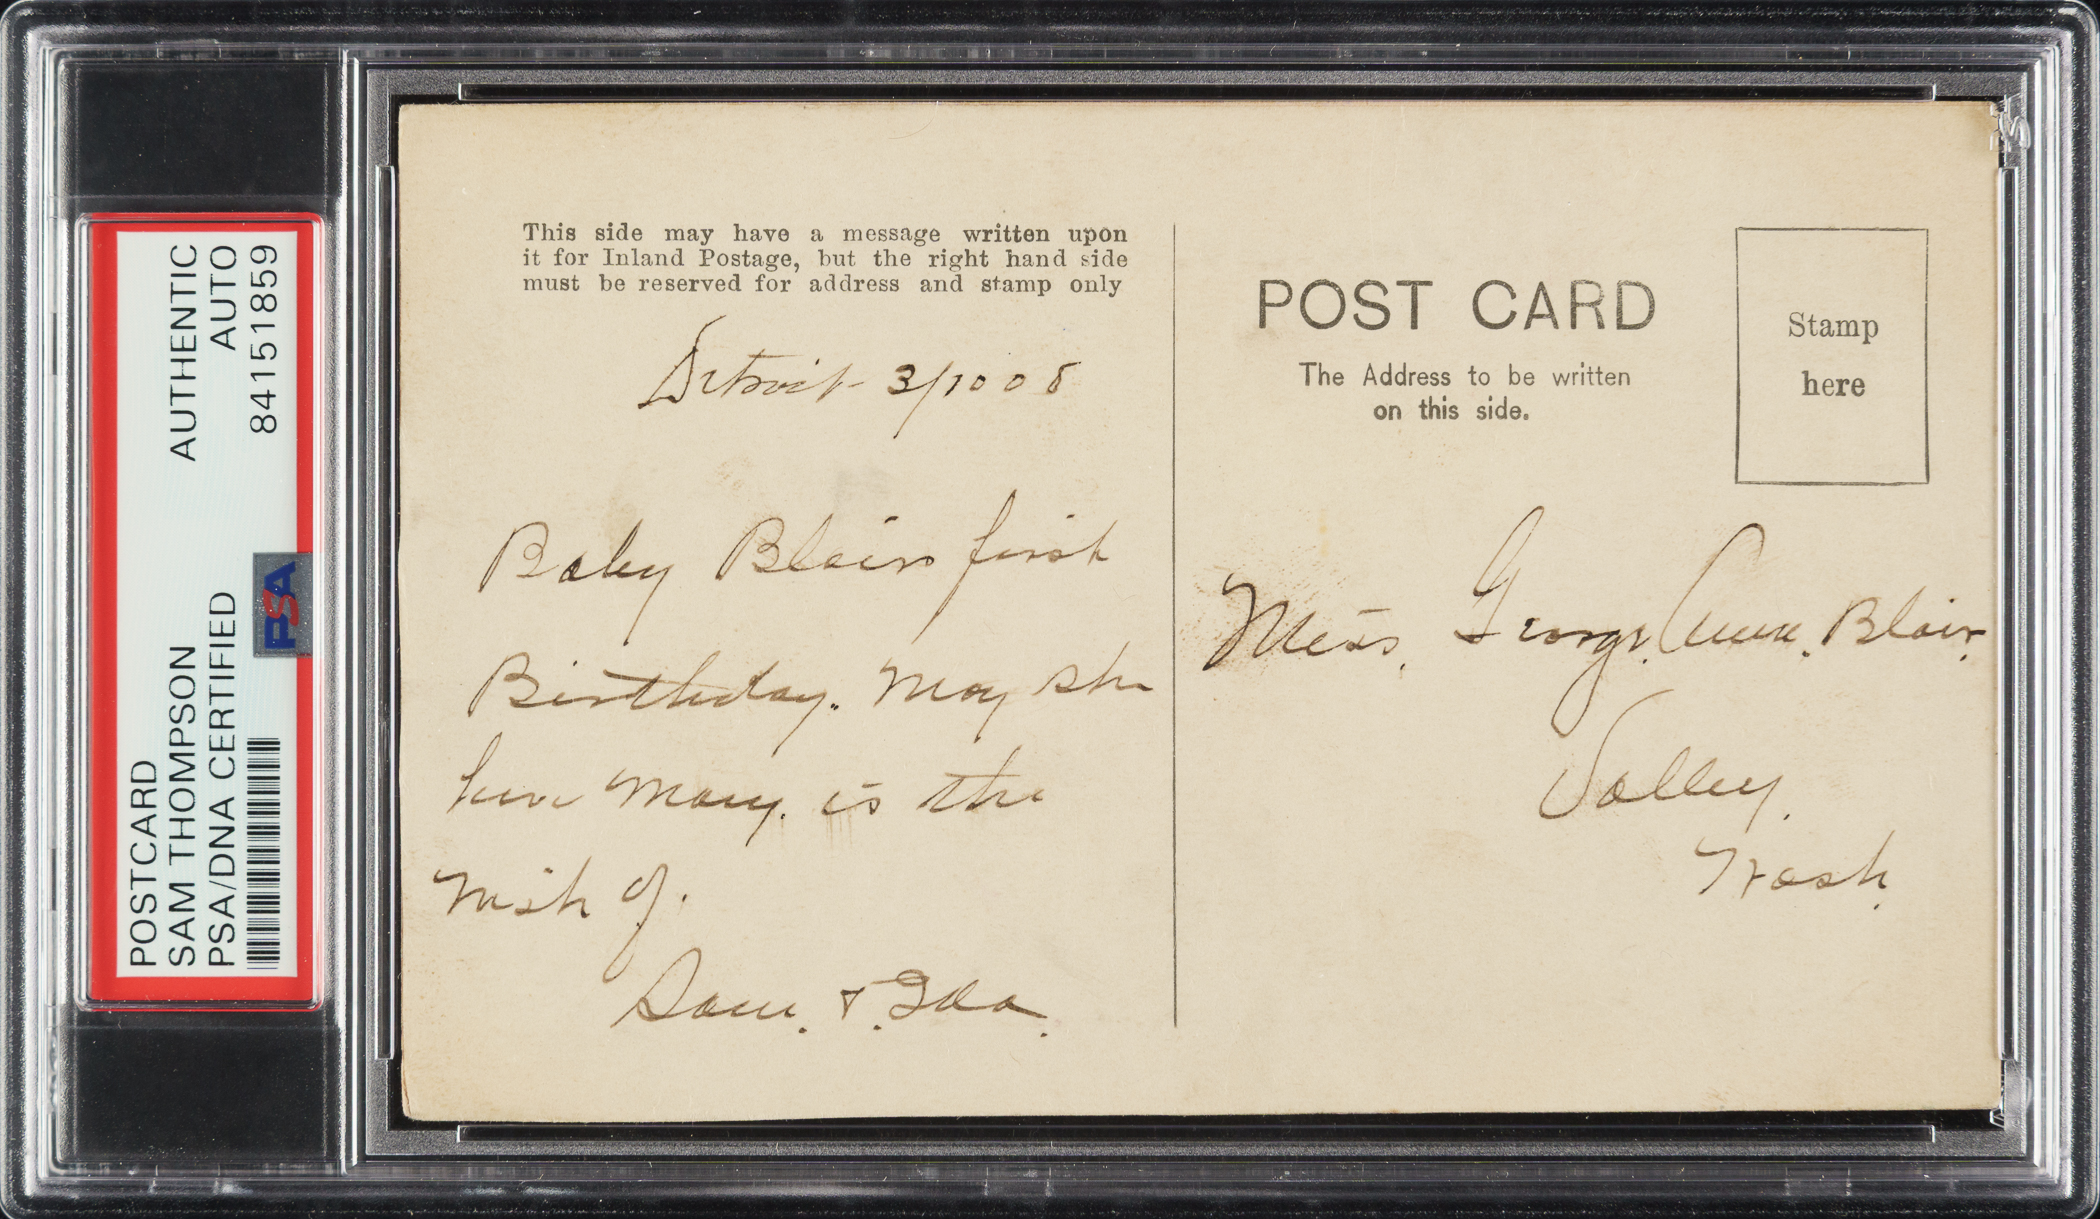 POSTCARD
SAM THOMPSON
PSA/DNA CERTIFIED
AUTHENTIC
AUTO
84151859
PSA
This side may have a message written upon
it for Inland Postage, but the right hand side
must be reserved for address and stamp only
Detroit 3/10 08
Baby Blair first
Birthday. May she
have many. is the
wish of.
Sam. & Ida.
POST CARD
The Address to be written
on this side.
Stamp
here
Miss. George. Ann. Blair.
Valley.
Wash.